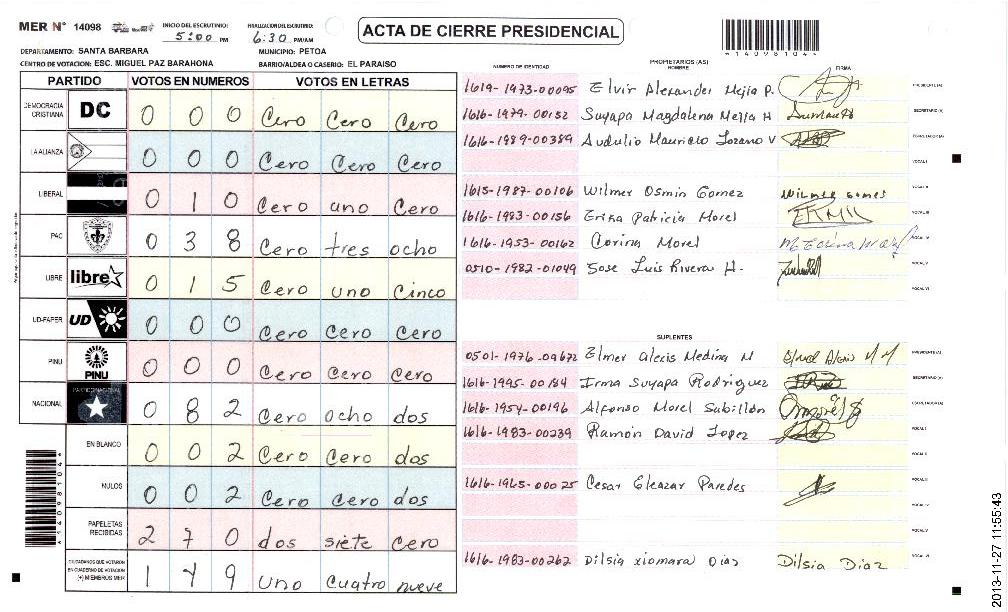 MER N° 14098 INICIO DEL ESCRUTINIO: 5:00 PM FINALIZACION DEL ESCRUTINIO: 6:30 PM/AM
ACTA DE CIERRE PRESIDENCIAL
*14098104*
DEPARTAMENTO: SANTA BARBARA MUNICIPIO: PETOA
CENTRO DE VOTACION: ESC. MIGUEL PAZ BARAHONA BARRIO/ALDEA O CASERIO: EL PARAISO
PARTIDO VOTOS EN NUMEROS VOTOS EN LETRAS
DEMOCRACIA CRISTIANA DC 0 0 0 Cero Cero Cero
LA ALIANZA 0 0 0 Cero Cero Cero
LIBERAL 0 1 0 Cero uno Cero
PAC 0 3 8 Cero tres ocho
LIBRE libre 0 1 5 Cero uno Cinco
UD-FAPER UD 0 0 0 Cero Cero Cero
PINU PINU 0 0 0 Cero Cero Cero
NACIONAL 0 8 2 Cero ocho dos
EN BLANCO 0 0 2 Cero Cero dos
NULOS 0 0 2 Cero Cero dos
PAPELETAS RECIBIDAS 2 7 0 dos siete Cero
CIUDADANOS QUE VOTARON EN CUADERNO DE VOTACION (+) MIEMBROS MER 1 4 9 uno cuatro nueve
*14098104*
NUMERO DE IDENTIDAD PROPIETARIOS (AS) NOMBRE FIRMA
1619-1973-00095 Elvir Alexander Mejia P. PRESIDENTE(A)
1616-1979-00152 Suyapa Magdalena Mejia H SECRETARIO (A)
1616-1989-00389 Audulio Mauricio Lozano V ESCRUTADOR(A)
VOCAL I
1615-1987-00106 Wilmer Osmin Gomez Wilmer Gomes VOCAL II
1616-1983-00156 Erika Patricia Morel VOCAL III
1616-1953-00162 Corina Morel VOCAL IV
0510-1982-01049 Jose Luis Rivera H. VOCAL V
VOCAL VI
SUPLENTES
0501-1976-09672 Elmer Alexis Medina M PRESIDENTE(A)
1616-1995-00184 Irma Suyapa Rodriguez SECRETARIO (A)
1616-1954-00196 Alfonso Morel Sabillón ESCRUTADOR(A)
1616-1983-00239 Ramón David Lopez VOCAL I
VOCAL II
1616-1965-00025 Cesar Eleazar Paredes VOCAL III
VOCAL IV
VOCAL V
1616-1983-00262 Dilsia Xiomara Dias Dilsia Diaz VOCAL VI
2013-11-27 11:55:43